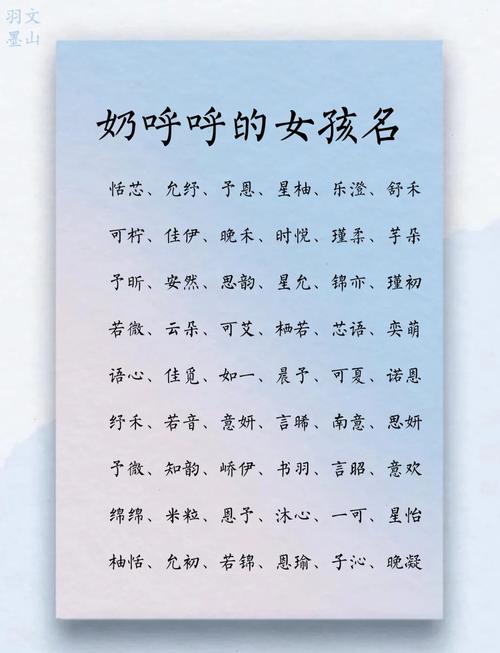 羽文
墨山
奶呼呼的女孩名
恬芯、允纾、予恩、星柚、乐澄、舒禾
可柠、佳伊、晚禾、时悦、瑾柔、芋朵
予昕、安然、思韵、星允、锦亦、瑾初
若微、云朵、可艾、栖若、芯语、奕萌
语心、佳觅、如一、晨予、可夏、诺恩
纾禾、若音、意妍、言晞、南意、思妍
予微、知韵、峤伊、书羽、言昭、意欢
绵绵、米粒、恩予、沐心、一可、星怡
柚恬、允初、若锦、恩瑜、子沁、晚凝